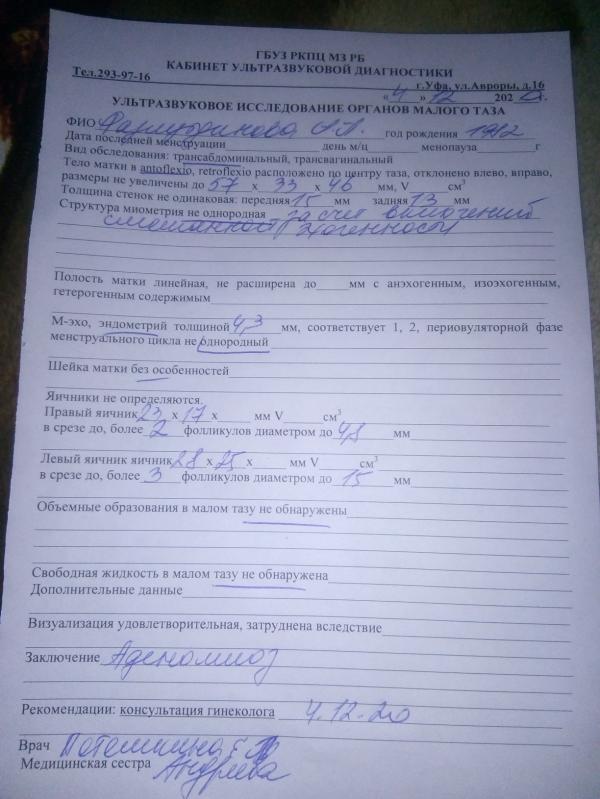 ГБУЗ РКПЦ МЗ РБ
КАБИНЕТ УЛЬТРАЗВУКОВОЙ ДИАГНОСТИКИ
Тел.293-97-16
г.Уфа, ул.Авроры, д.16
«4» 12 202 г.
УЛЬТРАЗВУКОВОЕ ИССЛЕДОВАНИЕ ОРГАНОВ МАЛОГО ТАЗА
ФИО год рождения
Дата последней менструации день м/ц менопауза г
Вид обследования: трансабдоминальный, трансвагинальный
Тело матки в antoflexio, retroflexio расположено по центру таза, отклонено влево, вправо,
размеры не увеличены до 57 х 33 х 46 мм, V см³
Толщина стенок не одинаковая: передняя 15 мм задняя 13 мм
Структура миометрия не однородная за счет включений
смешанной эхогенности
Полость матки линейная, не расширена до мм с анэхогенным, изоэхогенным,
гетерогенным содержимым
М-эхо, эндометрий толщиной 4,3 мм, соответствует 1, 2, периовуляторной фазе
менструального цикла не однородный
Шейка матки без особенностей
Яичники не определяются.
Правый яичник 23 х 17 х мм V см³
в срезе до, более 2 фолликулов диаметром до 4,8 мм
Левый яичник яичник 28 х 25 х мм V см³
в срезе до, более 3 фолликулов диаметром до 15 мм
Объемные образования в малом тазу не обнаружены
Свободная жидкость в малом тазу не обнаружена
Дополнительные данные
Визуализация удовлетворительная, затруднена вследствие
Заключение Аденомиоз
Рекомендации: консультация гинеколога 4.12.20
Врач
Медицинская сестра Андреева